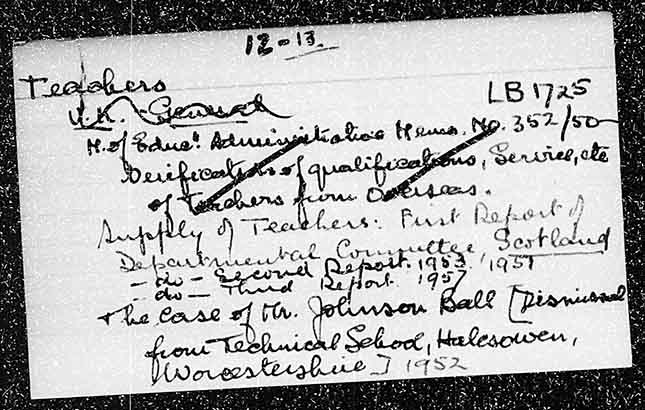 12-13
Teachers
U.K. General
LB 1725
M. of Educn. Administrative Memo. No. 352/50
Verification of qualifications, Service, etc
of Teachers from Overseas.
Supply of Teachers: First Report of
Departmental Committee, Scotland
- do - Second Report. 1953, 1951
- do - Third Report 1957
The Case of Mr. Johnson Ball [Dismissal
from Technical School, Halesowen,
Worcestershire] 1952